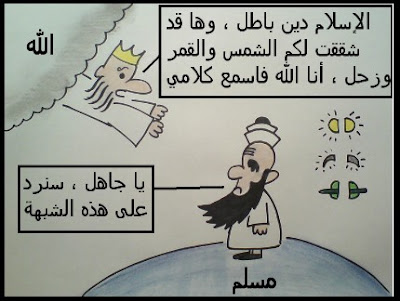 الله
الإسلام دين باطل ، وها قد
شققت لكم الشمس والقمر
وزحل ، أنا الله فاسمع كلامي
يا جاهل ، سنرد
على هذه الشبهة
مسلم